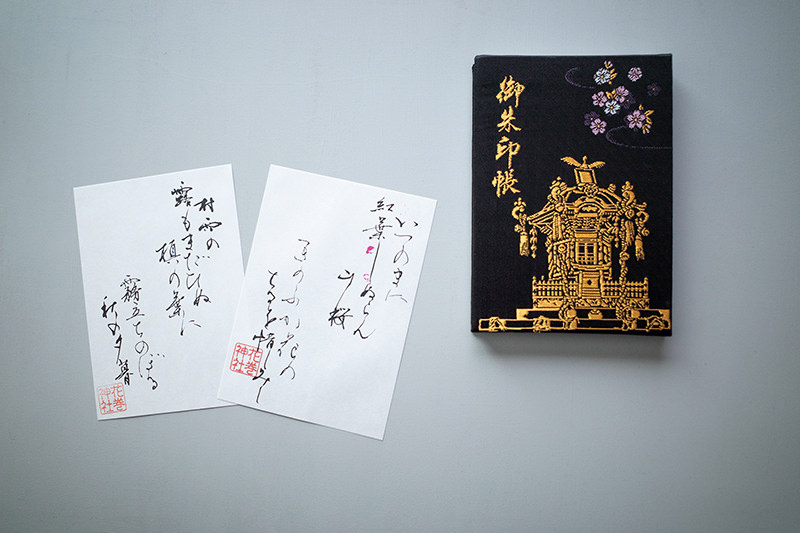 村雨の
露もまだひぬ
槙の葉に
霧立ちのぼる
秋の夕暮
花巻
神社
いつのまに
紅葉しぬらん
山桜
きのふか花の
ちるを惜しみし
花巻
神社
御朱印帳